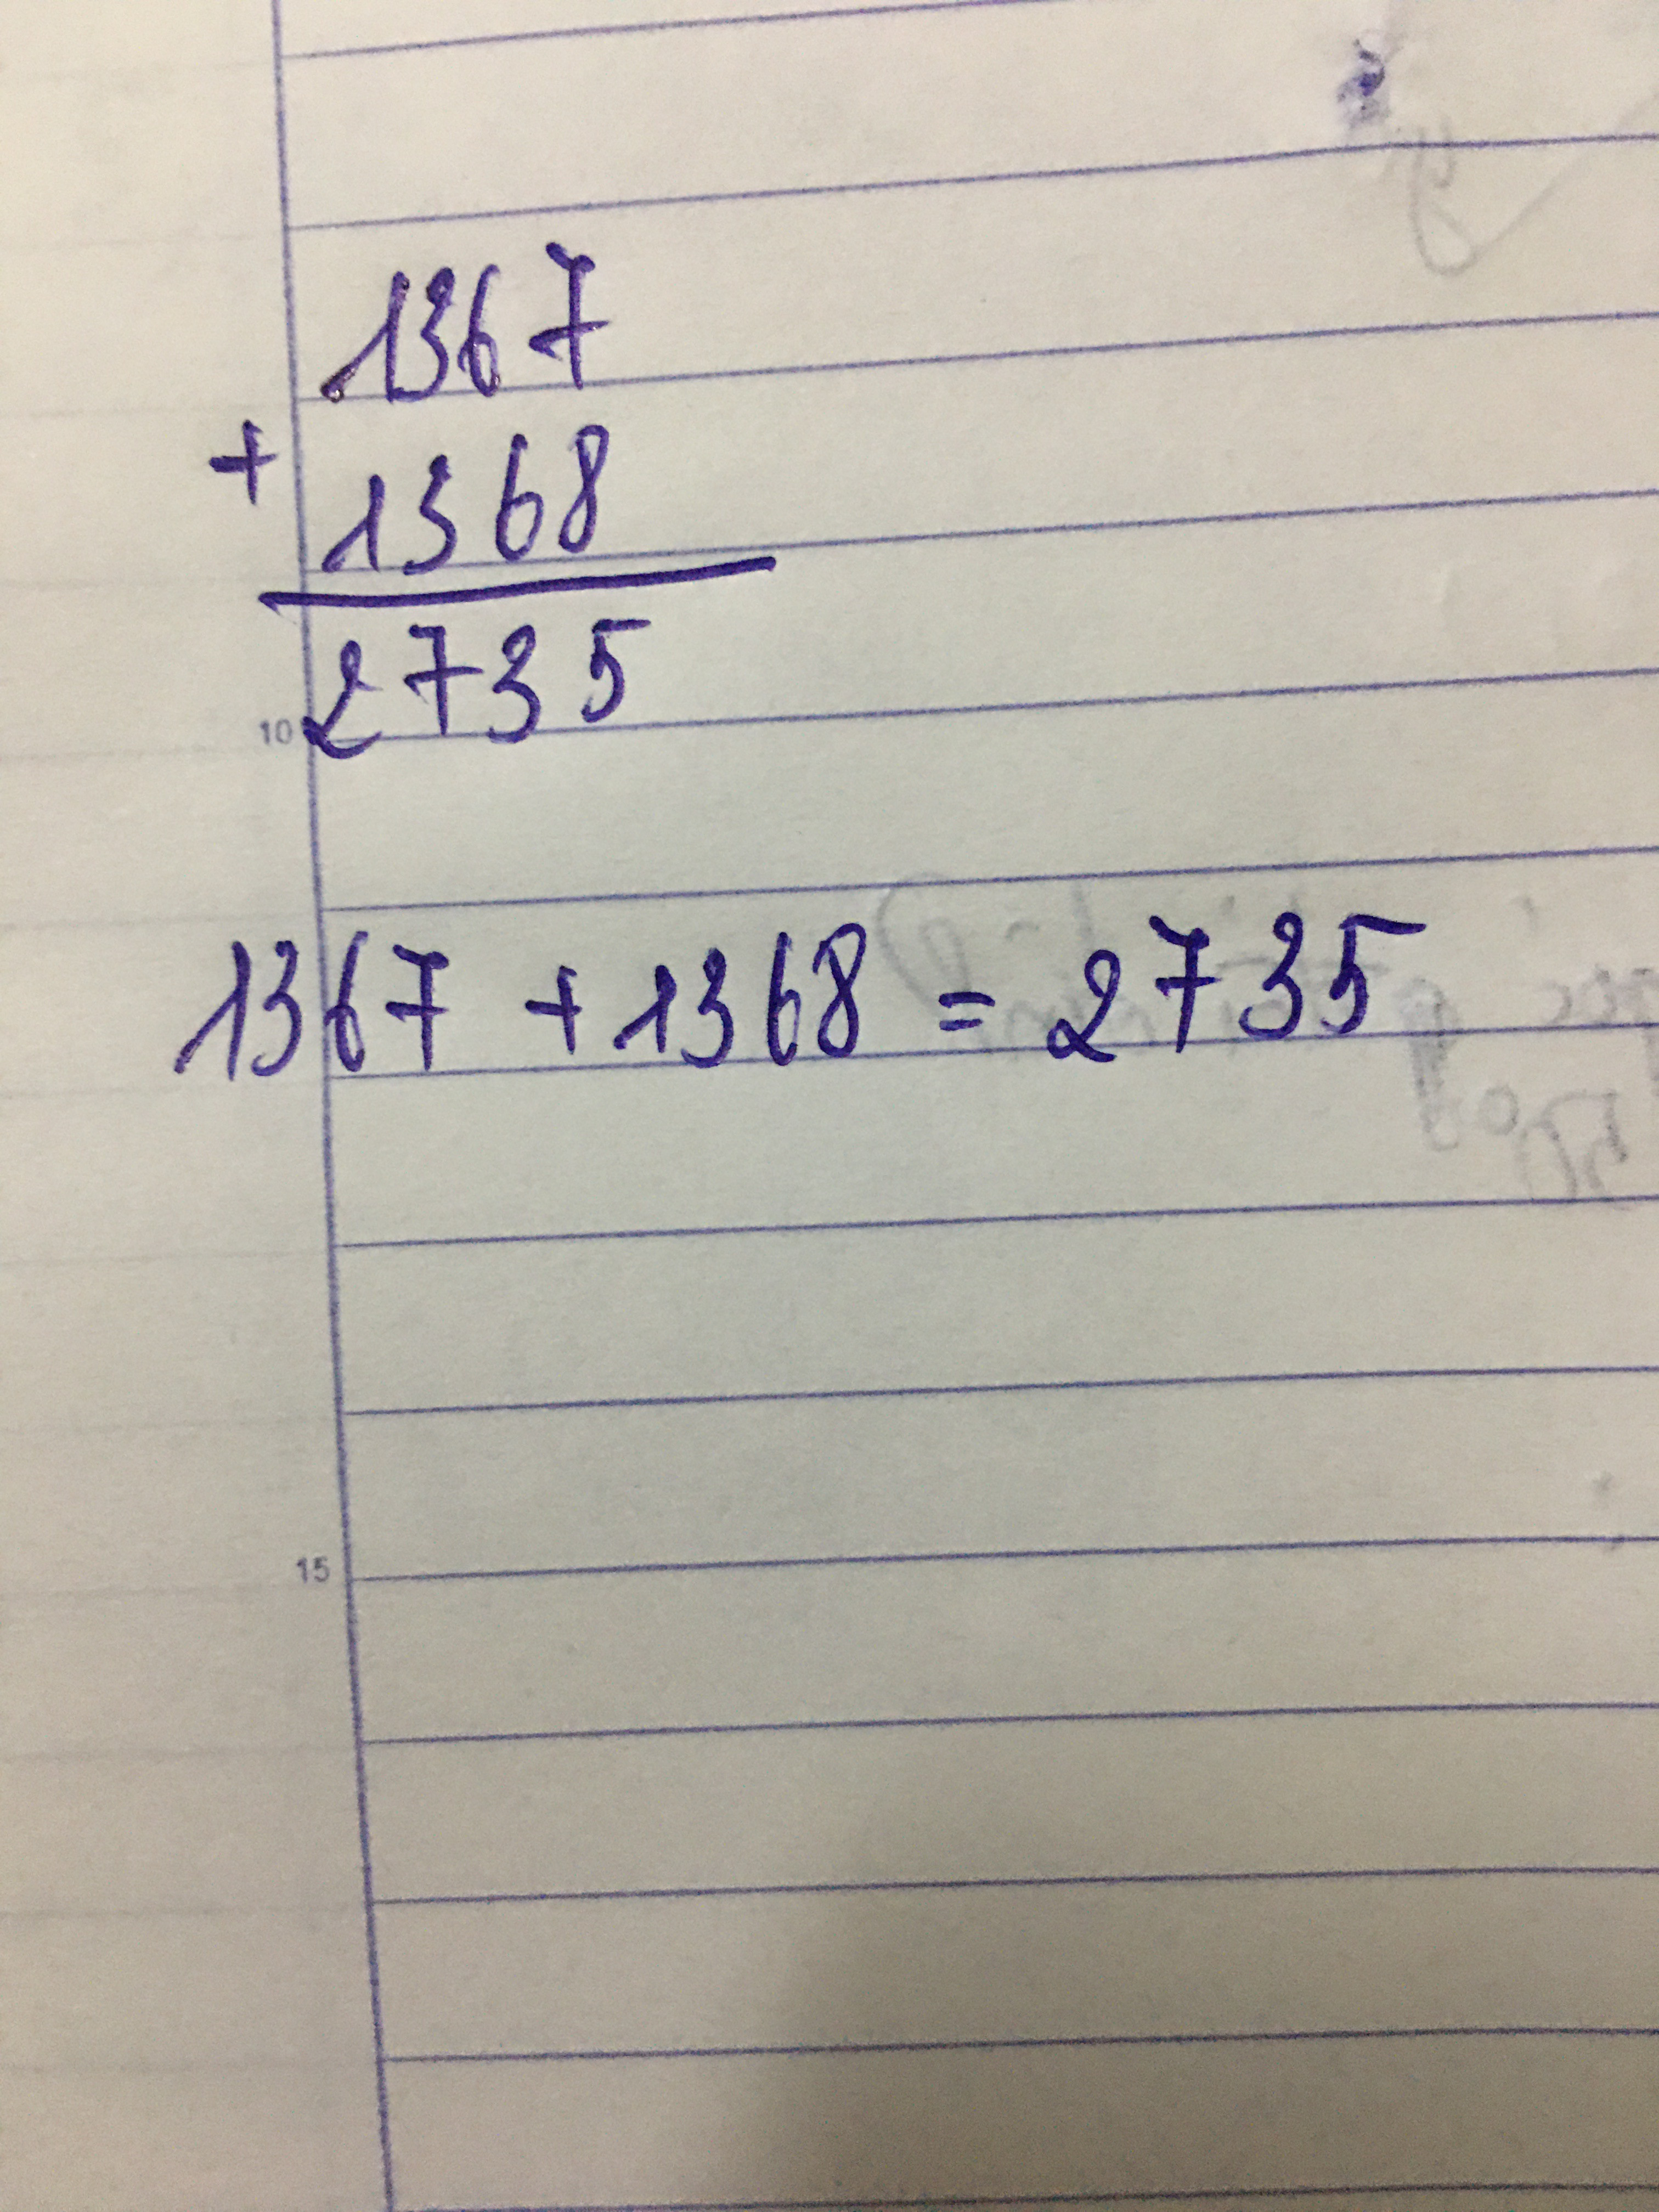 1367
+
1368
2735
10
1367 + 1368 = 2735
15